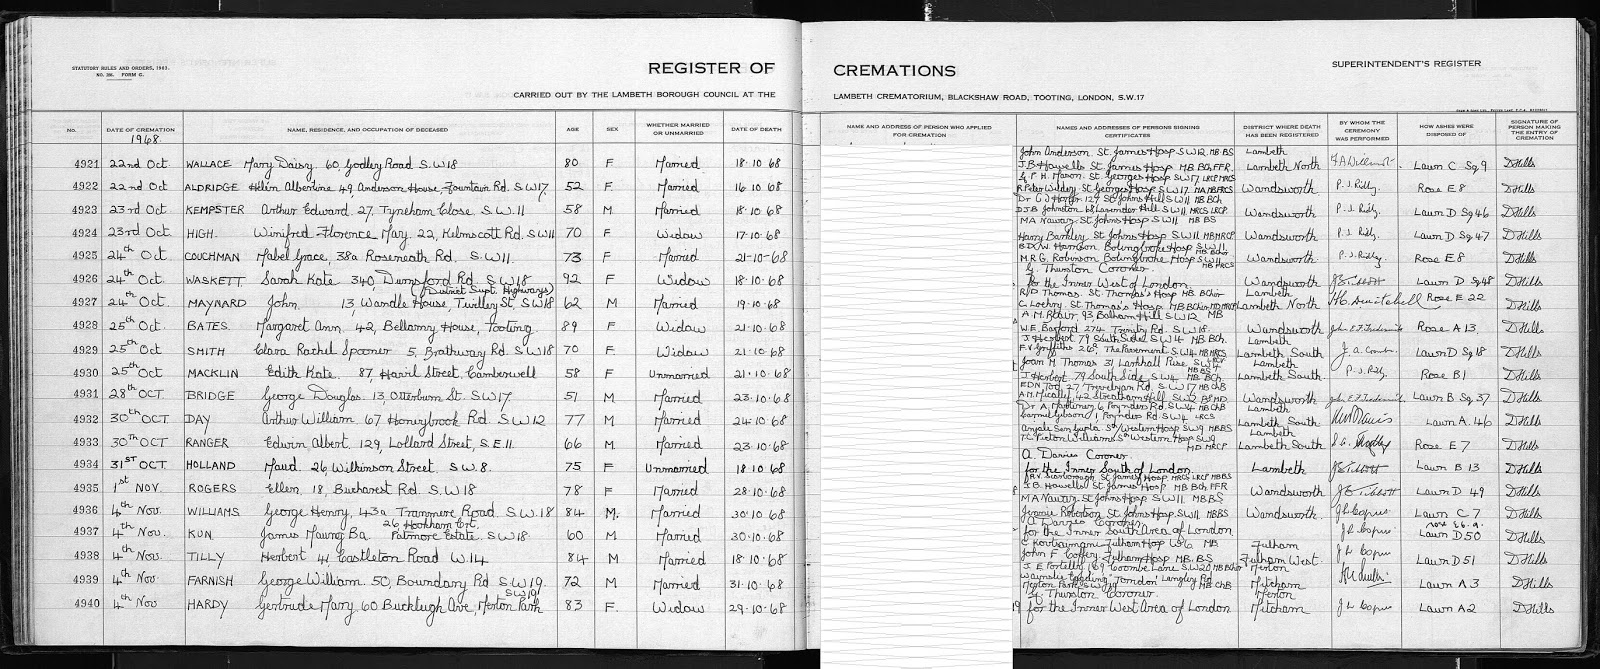 STATUTORY RULES AND ORDERS, 1903.
NO. 286. FORM C.
REGISTER OF CREMATIONS
SUPERINTENDENT'S REGISTER
CARRIED OUT BY THE LAMBETH BOROUGH COUNCIL AT THE LAMBETH CREMATORIUM, BLACKSHAW ROAD, TOOTING, LONDON, S.W.17
NO. DATE OF CREMATION NAME, RESIDENCE, AND OCCUPATION OF DECEASED AGE SEX WHETHER MARRIED OR UNMARRIED DATE OF DEATH NAME AND ADDRESS OF PERSON WHO APPLIED FOR CREMATION NAMES AND ADDRESSES OF PERSONS SIGNING CERTIFICATES DISTRICT WHERE DEATH HAS BEEN REGISTERED BY WHOM THE CEREMONY WAS PERFORMED HOW ASHES WERE DISPOSED OF SIGNATURE OF PERSON MAKING THE ENTRY OF CREMATION
1968.
4921 22nd Oct. WALLACE Mary Daisy 60 Godley Road S.W.18 80 F Married 18.10.68
4922 22nd Oct ALDRIDGE Albertine 49, Anderson House, Fountain Rd. S.W.17. 52 F. Married 16.10.68
4923 23rd Oct KEMPSTER Arthur Edward. 27, Tyneham Close. S.W.11 58 M Married 18.10.68
4924 23rd Oct. HIGH. Winifred Florence Mary. 22, Kelmscott Rd. S.W.11 70 F Widow 17.10.68
4925 24th Oct. COUCHMAN Mabel Grace, 38a Roseneath Rd. S.W.11. 73 F Married 21-10-68
4926 24th Oct. WASKETT. Sarah Kate 340, Dunsford Rd. S.W.18 92 F Widow 18.10.68
(District Supt. Highways)
4927 24th Oct. MAYNARD John. 13, Wandle House, Twilley St, S.W.18 62 M Married 19.10.68
4928 25th Oct. BATES. Margaret Ann. 42, Bellamy House, Tooting. 89 F Widow 21.10.68
4929 25th Oct SMITH Clara Rachel Spooner 5, Brathway Rd. S.W.18 70 F Widow 21.10.68
4930 25th Oct MACKLIN Edith Kate. 87, Havil Street, Camberwell 58 F Unmarried 21.10.68
4931 28th OCT. BRIDGE George Douglas. 13, Otterburn St. S.W.17. 51 M Married 23.10.68
4932 30th OCT. DAY Arthur William 67 Honeybrook Rd. S.W.12 77 M Married 24.10.68
4933 30th OCT RANGER Edwin Albert, 129, Lollard Street, S.E.11. 66 M Married 23.10.68
4934 31st OCT. HOLLAND Maud. 26, Wilkinson Street. S.W.8. 75 F Unmarried 18.10.68
4935 1st NOV. ROGERS Ellen. 18, Bucharest Rd. S.W.18 78 F Married 28.10.68
4936 4th Nov. WILLIAMS George Henry, 43a Tranmere Road. S.W.18 84 M. Married 30.10.68
26 Hookham Crt.
4937 4th Nov. KUN James Maung Ba. Patmore Estate. S.W.8 60 M Married 30.10.68
4938 4th Nov. TILLY Herbert 41, Castleton Road W.14 84 M Married 18.10.68
4939 4th Nov FARNISH George William. 50, Boundary Rd S.W.19. 72 M Married 31.10.68
S.W.19
4940 4th Nov HARDY Gertrude Mary, 60 Buckleigh Ave, Merton Park 83 F. Widow 29.10.68
John Anderson St. James Hosp S.W.12. MB.BS Lambeth
J.B. Howells St. James Hosp MB BCh, FFR. Lambeth North Lawn C Sq 9 DHills
P.H. Mason. St. Georges Hosp S.W.17. LRCP MRCS
St Georges Hosp S.W.17. Wandsworth P.J. Ridley. Rose E8 DHills
127 St. Johns Hill S.W.11 MB BCh
D.J.B. Johnston 68 Lavender Hill S.W.11 MRCS LRCP Wandsworth P.J. Ridley. Lawn D Sq 46 DHills
MA Nawaz. St Johns Hosp S.W.11 MB BS
Harry Barkley St Johns Hosp S.W.11 MB MRCP Wandsworth P.J. Ridley. Lawn D Sq 47 DHills
Harrison Bolingbroke Hosp S.W.11.
M.R.G. Robinson Bolingbroke Hosp S.W.11 Wandsworth P.J. Ridley Rose E8 DHills
G. Thurston Coroner. MB MRCS
for the Inner West of London Wandsworth Lawn D Sq 48 DHills
R/D Thomas. St. Thomas's Hosp MB BChir Lambeth
St Thomas's Hosp Lambeth North Rose E 22 DHills
93 Balham Hill S.W.12 MB
W.E. Barford 274 Trinity Rd. S.W.18. Wandsworth Rose A 13 DHills
J Herbert 79 South Side S.W.4 MB. BCh. Lambeth
F.V. Griffiths 26a, The Pavement S.W.4 MB MRCS. Lambeth South Lawn D Sq 18 DHills
Joan M Thomas 31 Larkhall Rise. S.W.4
J Herbert. 79 South Side S.W.4 MB BCh. Lambeth South. P.J. Ridley Rose B1 DHills
27 Trevelyan Rd. S.W.17
A.M. Micallef, 42 Streatham Hill S.W.2 Wandsworth Lawn B Sq. 37 DHills
6 Poynders Rd S.W.4 MB ChB Lambeth
Gibson 1 Poynders Rd. S.W.4 LRCS Lambeth South Lawn A. 46 DHills
Anjali Sen Gupta Sth Western Hosp SW9 MBBS Lambeth
Picton Williams Sth Western Hosp SW9 Lambeth South Rose E 7 DHills
MD MRCP
A Davies Coroner.
for the Inner South of London. Lambeth Lawn B 13 DHills
Scarborough St James Hosp. MRCS LRCP MBBS
J.B. Howells St. James Hosp MB BCh, FFR Wandsworth Lawn D 49 DHills
MA Nawaz. St Johns Hosp S.W.11. MB.BS
Jennie Robertson St. Johns Hosp S.W.11 MBBS Wandsworth. Lawn C 7 DHills
A Davies Coroner
for the Inner South Area of London. Lawn D50 DHills
Fulham Hosp W6 MB Fulham
John F Coffey, Fulham Hosp MB. BS Fulham West. Lawn D51 DHills
J.E. Portelli, 169 Coombe Lane S.W.20 MB BChir Merton
Langley Rd
Merton Park SW19 MB ChB Mitcham Lawn A 3 DHills
G Thurston Coroner Merton
for the Inner West Area of London Mitcham Lawn A2 DHills